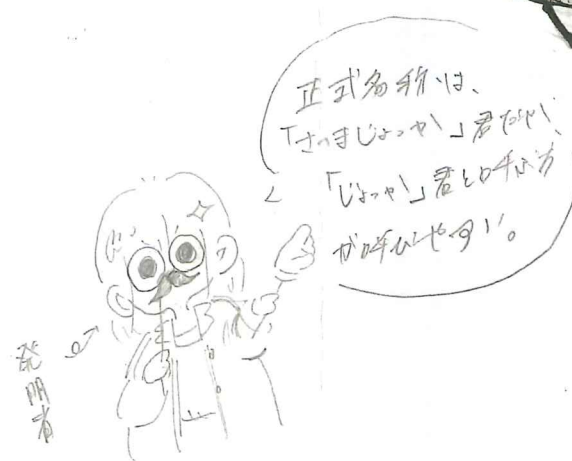 正式名称は、
「さつまじょっか」君だが、
「じょか」君と呼ぶ方
が呼びやすい。
発明者